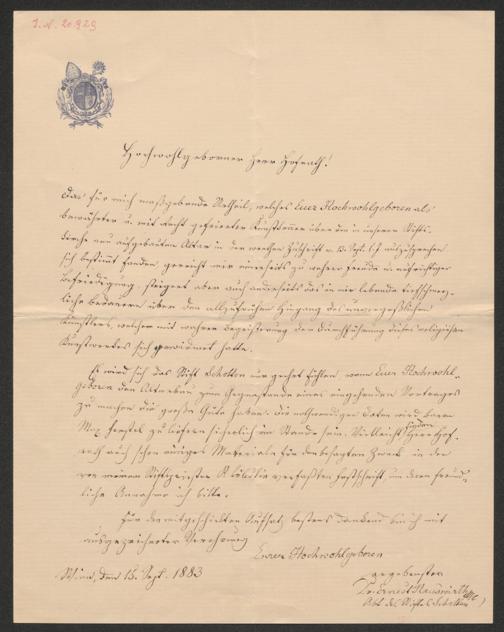 J. N. 20.929
Hochwohlgeborner Herr Hofrath!
Das für mich maßgebende Urtheil, welches Euer Hochwohlgeboren als
bewährter u. mit Recht gefeierter Kunstkenner über den in unserer Stifts-
kirche neu aufgebauten Altar in der werthen Zuschrift v. 13. Sept. l. J. auszusprechen
sich bestimmt fanden gereicht mir einerseits zu wahrer Freude u. aufrichtiger
Befriedigung, steigert aber auch anderseits das in mir lebende tiefschmerz-
liche Bedauern über den allzufrühen Hingang des unvergeßlichen
Künstlers, welcher mit wahrer Begeisterung der Durchführung dieses religiösen
Kunstwerkes sich gewidmet hatte.
Es wird sich das Stift Schotten nur geehrt fühlen, wenn Euer Hochwohl-
geboren den Altarbau zum Gegenstande eines eingehenden Vortrages
zu machen die große Güte haben. Die nothwendigen Daten wird Baron
Max Ferstel zu liefern sicherlich im Stande sein. Vielleicht finden Herr Hof-
rath auch schon einiges Materiale für den besagten Zweck in der
von meinem Stiftspriester verfaßten Festschrift, um deren freund-
liche Annahme ich bitte.
Für den mitgeschickten Aufsatz bestens dankend bin ich mit
ausgezeichneter Verehrung
Eurer Hochwohlgeboren
ergebenster
Wien, den 15. Sept. 1883
Dr. Ernest Hauswirth
Abt des Stiftes Schotten